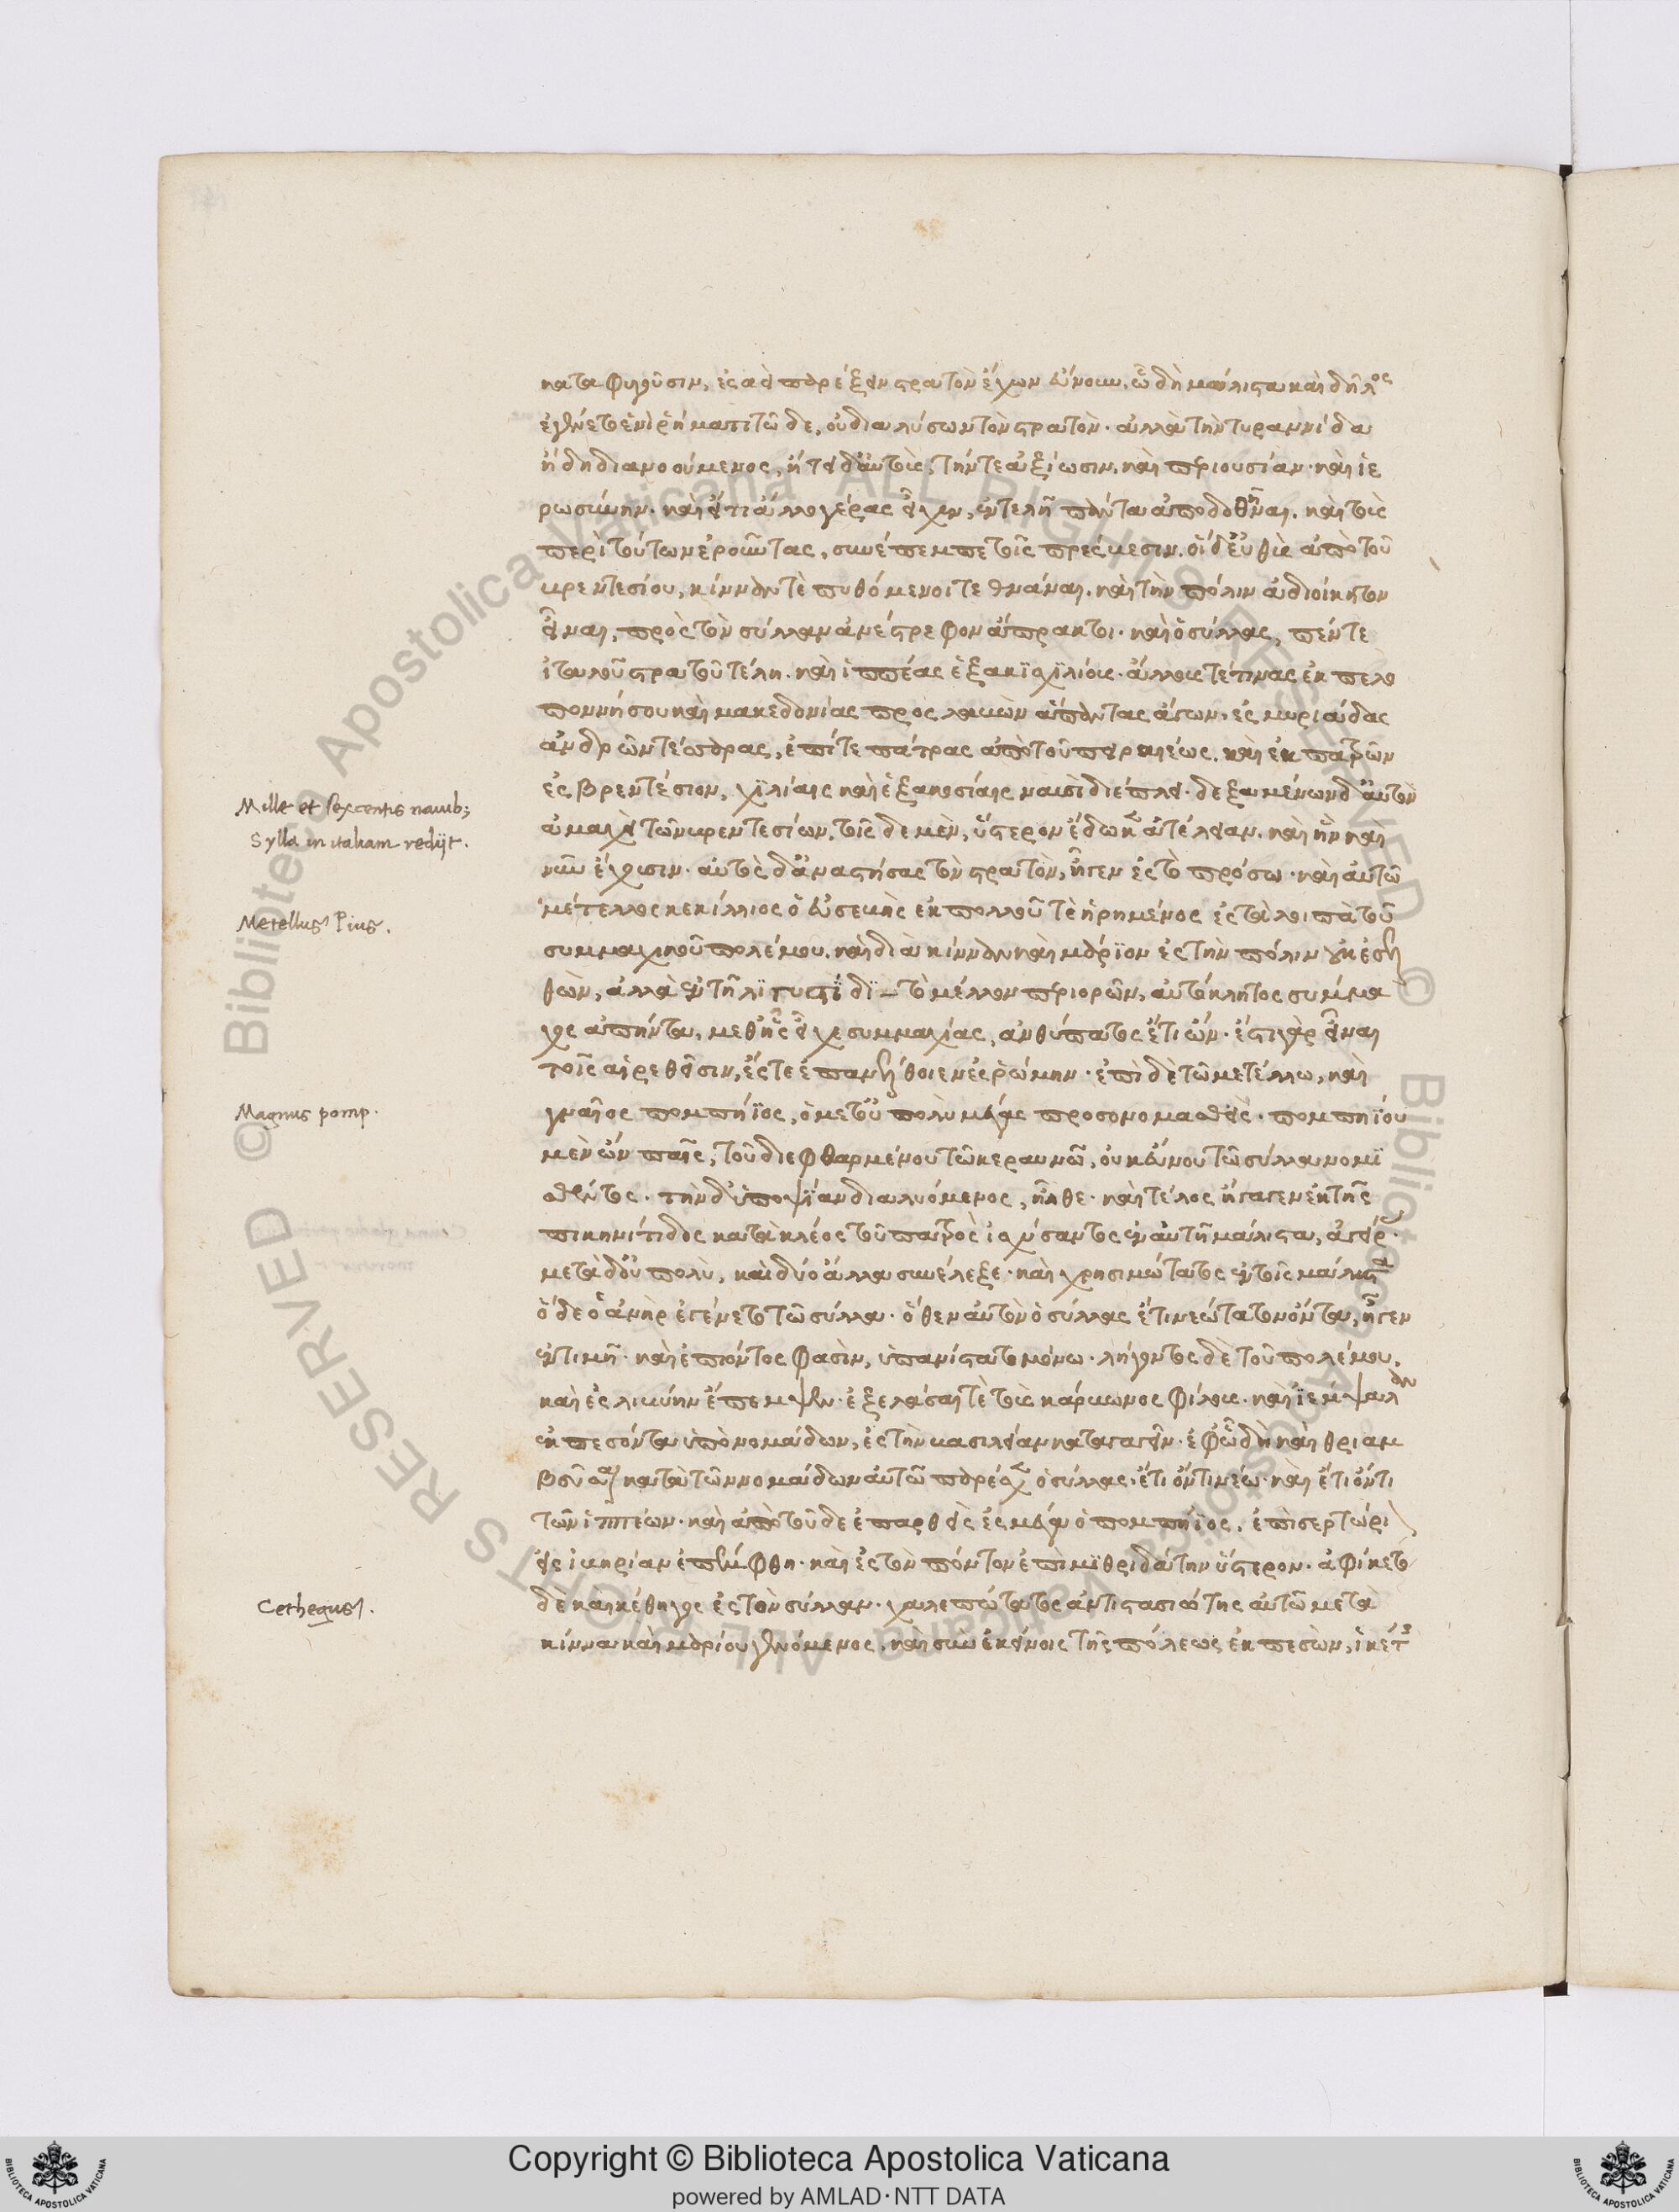 καταφυγοῦσιν, ἐς ἀεὶ παρέξειν στρατὸν ἔχων εὔνουν. ᾧ δὴ μάλιστα καὶ δῆλος
ἐγένετο ἑνὶ ῥήματι τῷδε, οὐ διαλύσων τὸν στρατὸν. ἀλλὰ τὴν τυραννίδα
ἤδη διανοούμενος, ᾔτει δ' αὐτοὺς, τήν τε ἀξίωσιν. καὶ περιουσίαν. καὶ ἱε
ρωσύνην. καὶ εἴ τι ἄλλο γέρας εἶχεν, ἐντελῆ πάντα ἀποδοθῆναι. καὶ τοὺς
περὶ τούτων ἐροῦντας, συνέπεμπε τοῖς πρέσβεσιν. οἱ δ' εὐθὺς ἀπὸ τοῦ
βρεντεσίου, κίνναν τὲ πυθόμενοι τεθνάναι. καὶ τὴν πόλιν ἀδιοίκητον
εἶναι, πρὸς τὸν σύλλαν ἀνέστρεφον ἄπρακτοι. καὶ ὁ σύλλας, πέντε
ἰταλοῦ στρατοῦ τέλη. καὶ ἱππέας ἑξακισχιλίους. ἄλλους τέ τινας ἐκ πελο
ποννήσου καὶ μακεδονίας προσλαβὼν ἅπαντας ἄγων, ἐς μυριάδας
ἀνδρῶν τέσσαρας, ἐπί τε πάτρας ἀπὸ τοῦ πειραιέως. καὶ ἐκ πατρῶν
ἐς βρεντέσιον, χιλίαις καὶ ἑξακοσίαις ναυσὶ διέπλει. δεξαμένων δ' αὐτὸν
ἀμαχεὶ τῶν βρεντεσίων, τοῖς δε μὲν, ὕστερον ἔδωκεν ἀτέλειαν. καὶ ἣν καὶ
νῦν ἔχουσιν. αὐτὸς δ' ἀναστήσας τὸν στρατὸν, ἦγεν ἐς τὸ πρόσω. καὶ αὐτῷ
μέτελλος κεκίλλιος ὁ εὐσεβὴς ἐκ πολλοῦ τὲ ᾑρημένος ἐς τὰ λοιπὰ τοῦ
συμμαχικοῦ πολέμου. καὶ διὰ κίνναν καὶ μάριον ἐς τὴν πόλιν οὐκ ἐσελ
θὼν, ἀλλὰ ἐν τῇ λιγυστίδι τὸ μέλλον περιορῶν, αὐτόκλητος σύμμα
χος ἀπήντα. μεθ' ἧς εἶχε συμμαχίας, ἀνθύπατος ἔτι ὤν. ἔστι γὰρ εἶναι
τοῖς αἱρεθεῖσιν, ἔστε ἐπανέλθοιεν ἐς ῥώμην. ἐπὶ δὲ τῷ μετέλλῳ, καὶ
γναῖος πομπήϊος, ὁ μετ' οὐ πολὺ μέγας προσονομασθεὶς. πομπηΐου
μὲν ὢν παῖς, τοῦ διεφθαρμένου τῷ κεραυνῷ, οὐκ εὔνου τῷ σύλλα νομι
σθέντος. τὴν δ' ὑποψίαν διαλυόμενος, ἦλθε. καὶ τέλος ἤγαγεν ἐκ τῆς
πικηνίτιδος κατὰ κλέος τοῦ πατρὸς ἰσχύσαντος ἐν αὐτῇ μάλιστα, ἀγείρας.
μετὰ δ' οὐ πολὺ, καὶ δύο ἄλλα συνέλεξε. καὶ χρησιμώτατος ἐν τοῖς μάλιστα
ὅδε ὁ ἀνὴρ ἐγένετο τῷ σύλλα. ὅθεν αὐτὸν ὁ σύλλας ἔτι νεώτατον ὄντα, ἦγεν
ἐν τιμῇ. καὶ ἐπιόντος φασὶν, ὑπανίστατο μόνῳ. λήγοντος δὲ τοῦ πολέμου,
καὶ ἐς λιβύην ἔπεμψεν. ἐξελάσαι τὲ τοὺς κάρβωνος φίλους. καὶ ἰεμψαλ
ἐκπεσόντα ὑπὸ νομάδων, ἐς τὴν βασιλείαν καταγαγεῖν. ἐφ' ᾧ δὴ καὶ θριαμ
βεῦσαι κατὰ τῶν νομάδων αὐτῷ παρέσχεν ὁ σύλλας. ἔτι ὄντι νέῳ. καὶ ἔτι ὄντι
τῶν ἱππέων. καὶ ἀπὸ τοῦδε ἐπαρθεὶς ἐς μέγα ὁ πομπήϊος, ἐπὶ σερτώρι
εἰς ἰβηρίαν ἐπέμφθη. καὶ ἐς τὸν πόντον ἐπὶ μιθριδάτην ὕστερον. ἀφίκετο
δὲ καὶ κέθηγος ἐς τὸν σύλλαν. χαλεπώτατος ἀντιστασιώτης αὐτῷ μετὰ
κίννα καὶ μαρίου γενόμενος. καὶ σὺν ἐκείνοις τῆς πόλεως ἐκπεσὼν, ἱκέτης
Mille et sexcentis nauib;
Sylla in italiam redijt.
Metellus Pius.
Magnus pomp.
Cethegus.
© Biblioteca Apostolica Vaticana ALL RIGHTS RESERVED
© Biblioteca Apostolica Vaticana ALL RIGHTS RESERVED
Copyright © Biblioteca Apostolica Vaticana
powered by AMLAD·NTT DATA
BIBLIOTECA APOSTOLICA VATICANA
BIBLIOTECA APOSTOLICA VATICANA